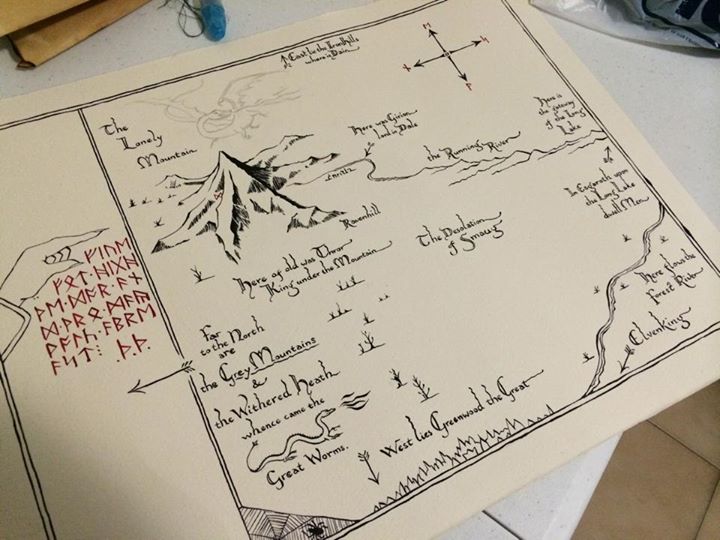 East lie the Iron Hills
where is Dain.
The
Lonely
Mountain
Here was Girion
lord in Dale
the Running River
Here is
of the Long
Lake
Ravenhill
In Esgaroth upon
the Long Lake
dwell Men
The Desolation
of Smaug
Here of old was Thror
King under the Mountain
Here flows the
Forest River
Elvenking
ᚠᛁᚢᛖ
ᚠᛟᛏ·ᚻᛁᚷᚻ
ᚦᛖ·ᛞᚩᚱ·ᚪᚾ
ᛞ·ᚦᚱᛟ·ᛗᚪᚣ
ᚹᚪᛚᚳ·ᚪᛒᚱᛖ
ᚪᛋᛏ: ᚦ.ᚦ.
Far
to the North
are
the Grey Mountains
&
the Withered Heath
whence came the
Great Worms.
West lies Greenwood the Great